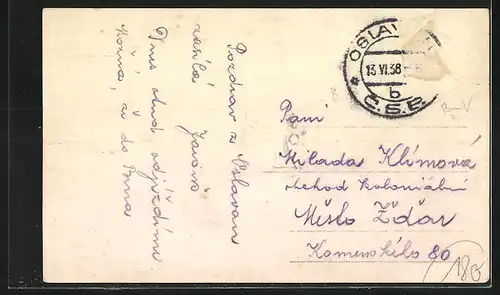 Pozdrav z Oslavan
zasílá Jarouš
Dnes odjíždíme
možná, ž do Brna
OSLAV
13 VI. 38
b
Č.S.R.
Paní
Milada Klímová
obchod koloniální
Město Žďár
Komenského 80
180